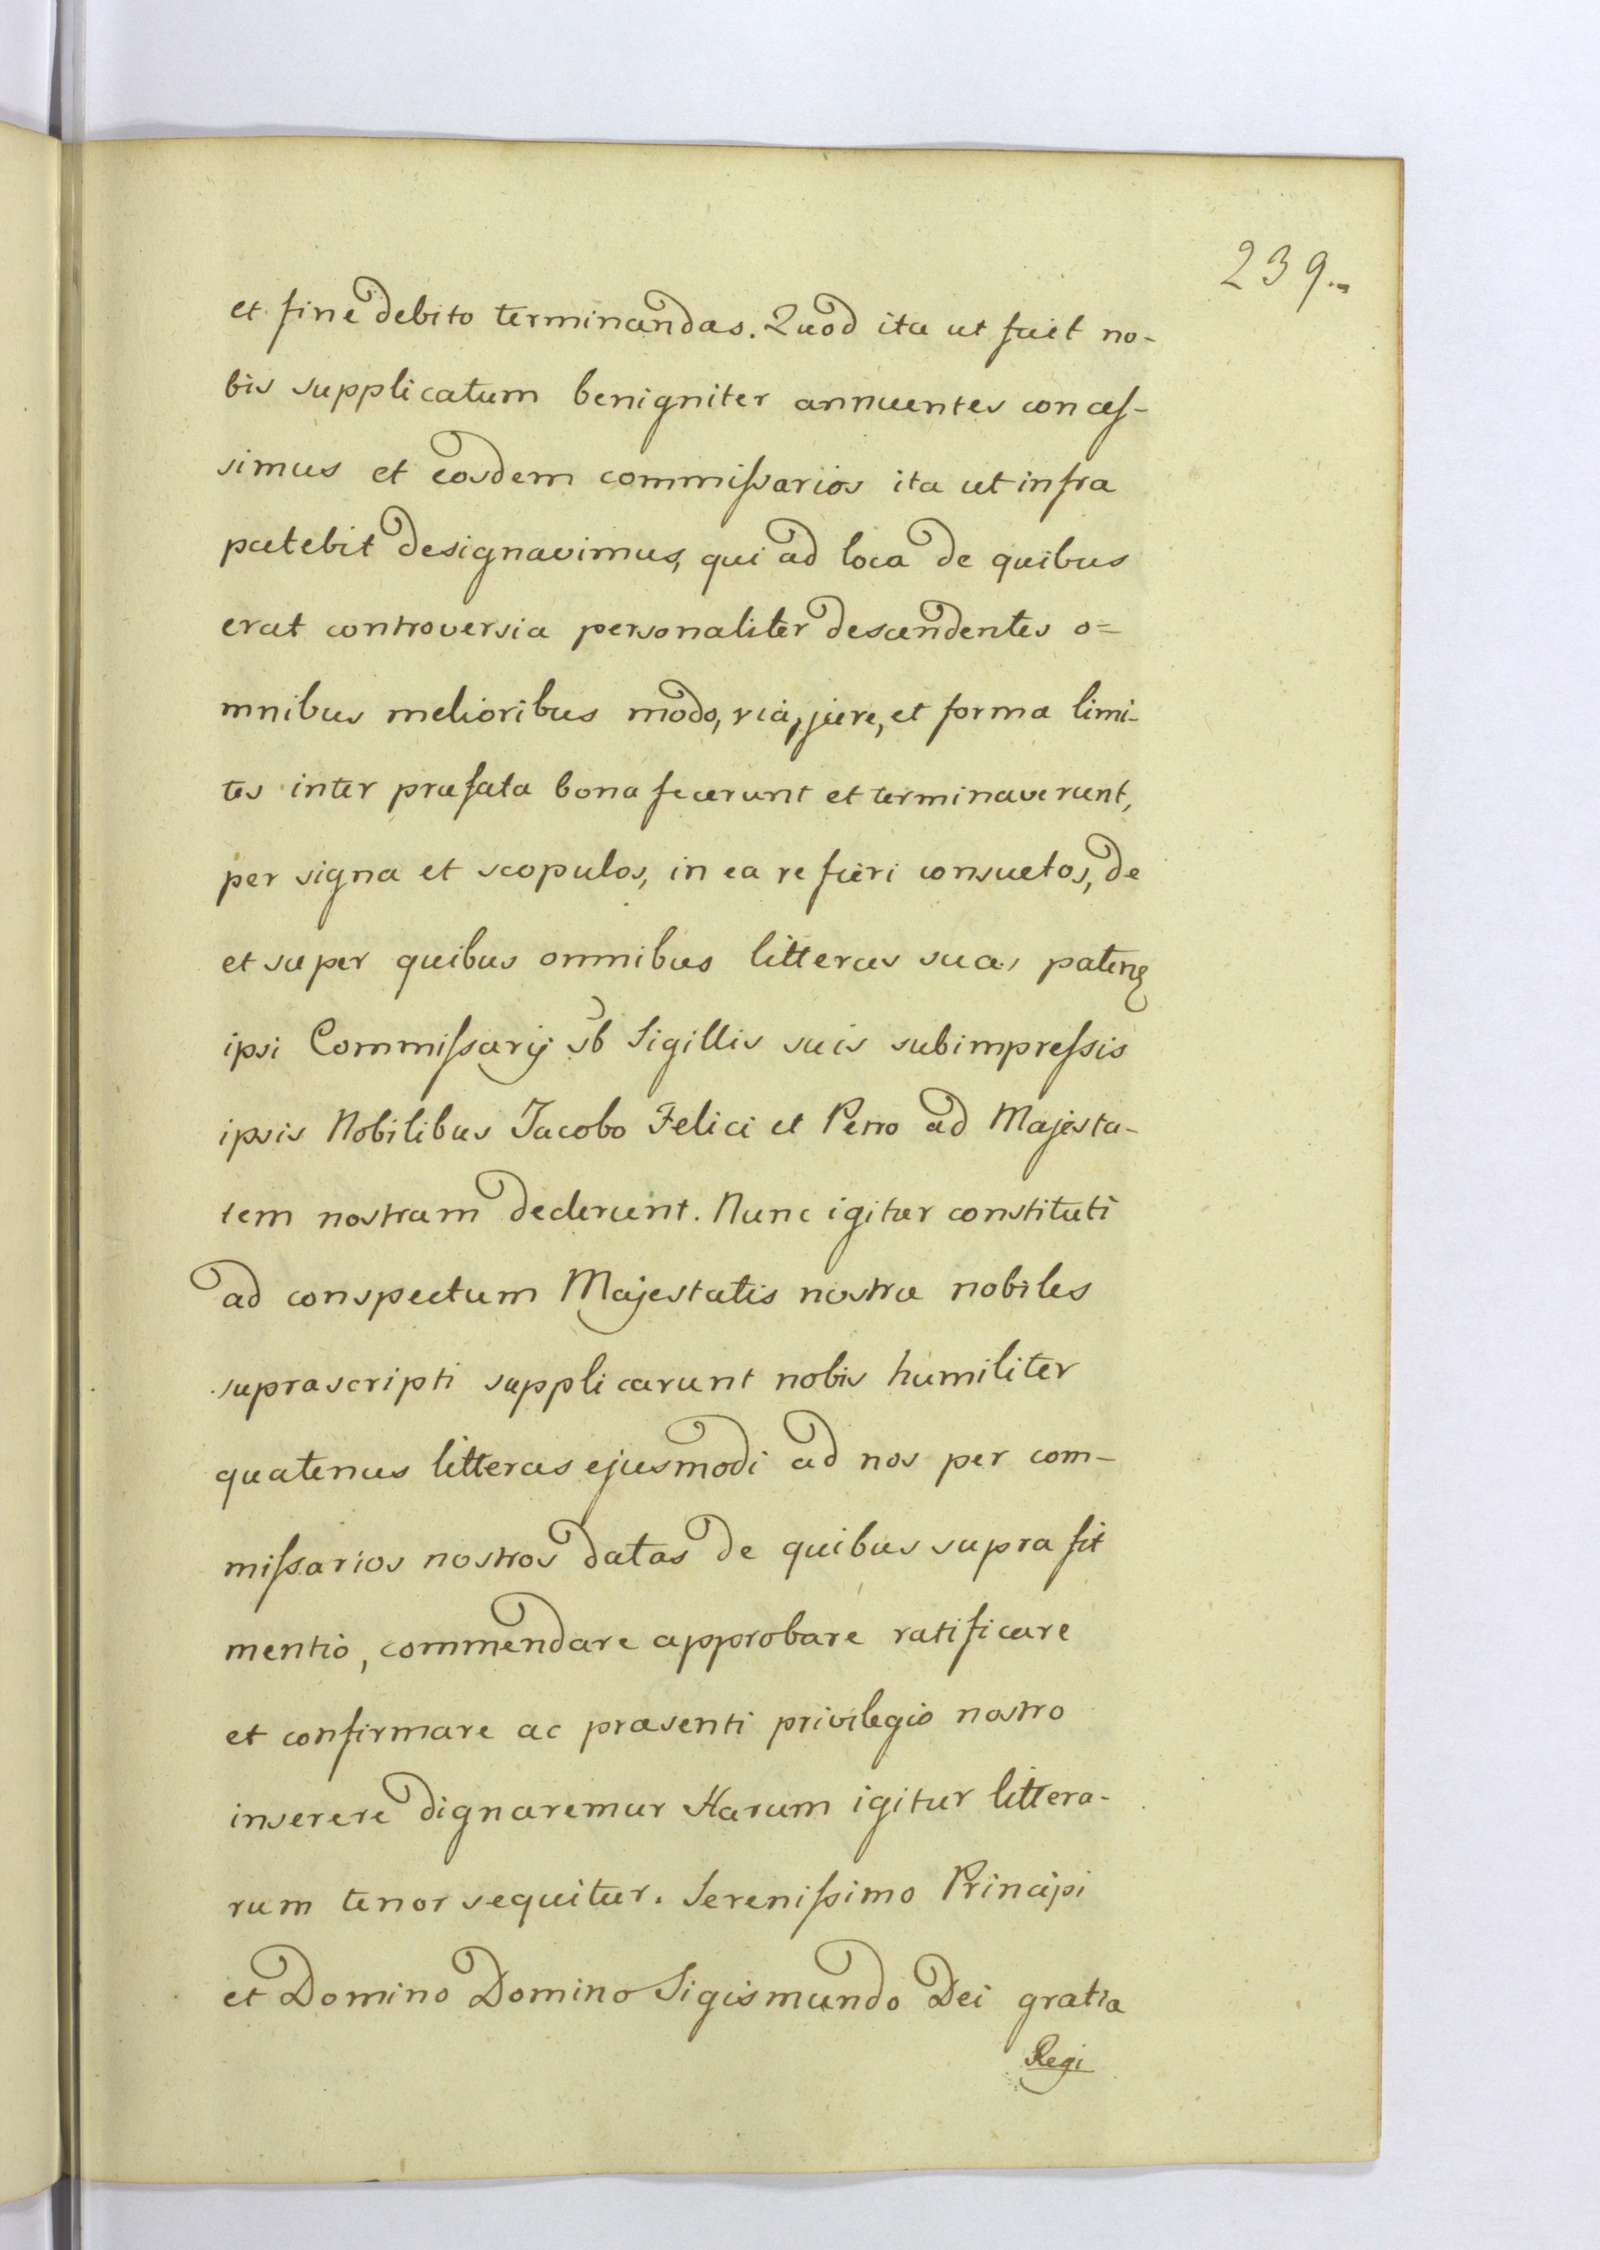 239.
et fine debito terminandas. Quod ita ut fuit no-
bis supplicatum benigniter annuentes conces-
simus et eosdem commissarios ita ut infra
patebit designavimus, qui ad loca de quibus
erat controversia personaliter descendentes o=
mnibus melioribus modo, via, jure, et forma limi-
tes inter præfata bona fecerunt et terminaverunt,
per signa et scopulos, in ea re fieri consuetos, de
et super quibus omnibus litteras suas patens
ipsi Commissarij sb Sigillis suis subimpressis
ipsis Nobilibus Jacobo Felici et Petro ad Majesta-
tem nostram dederunt. Nunc igitur constituti
ad conspectum Majestatis nostræ nobiles
suprascripti supplicarunt nobis humiliter
quatenus litteras ejusmodi ad nos per com-
missarios nostros datas de quibus supra fit
mentio, commendare approbare ratificare
et confirmare ac præsenti privilegio nostro
inserere dignaremur Harum igitur littera-
rum tenor sequitur. Serenissimo Principi
et Domino Domino Sigismundo Dei gratia
Regi